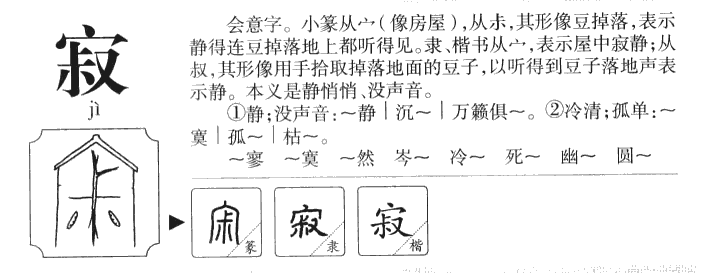 寂
jì
会意字。小篆从宀(像房屋),从尗,其形像豆掉落,表示
静得连豆掉落地上都听得见。隶、楷书从宀,表示屋中寂静;从
叔,其形像用手拾取掉落地面的豆子,以听得到豆子落地声表
示静。本义是静悄悄、没声音。
①静;没声音:~静|沉~|万籁俱~。②冷清;孤单:~
寞|孤~|枯~。
~寥 ~寞 ~然 岑~ 冷~ 死~ 幽~ 圆~
篆 寂 隶 寂 楷